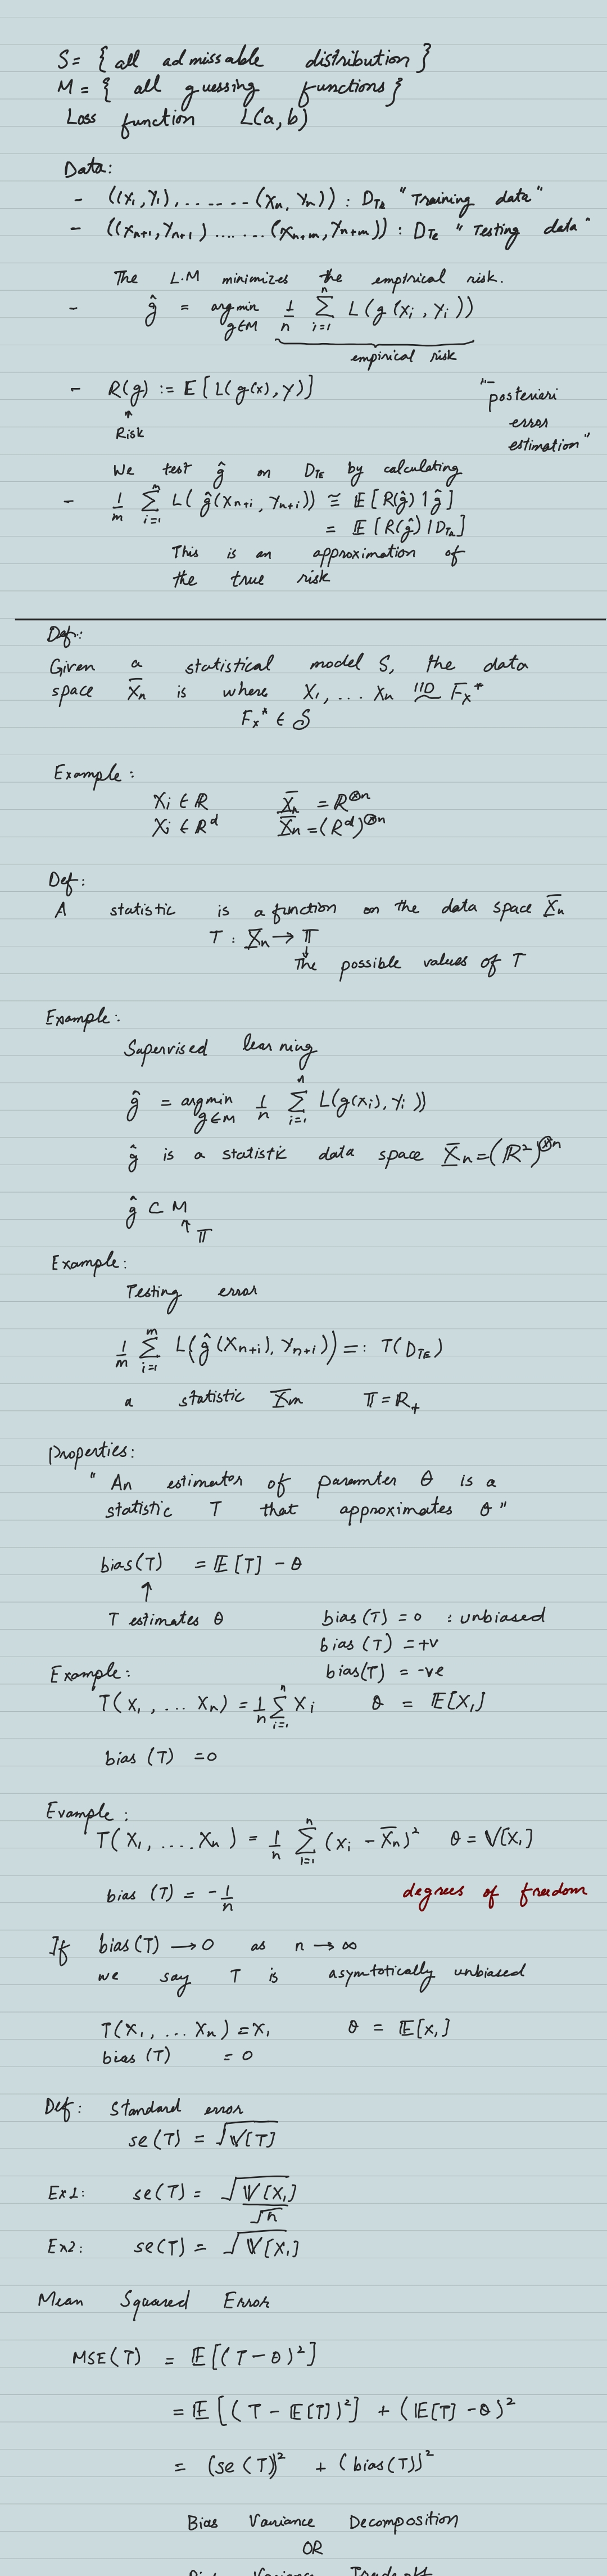 S = { all admissable distribution }
M = { all guessing functions }
Loss function L(a, b)
Data:
- ((X₁, Y₁), ....... (Xₙ, Yₙ)) : D_Tr "Training data"
- ((Xₙ₊₁, Yₙ₊₁) ....... (Xₙ₊ₘ, Yₙ₊ₘ)) : D_Te "Testing data"
The L.M minimizes the empirical risk.
- ĝ = argmin_{g∈M} 1/n Σ_{i=1}^{n} L(g(Xᵢ, Yᵢ))
empirical risk
- R(g) := 𝔼[L(g(x), y)]
"-posteriori
↑
error
Risk
estimation"
We test ĝ on D_TE by calculating
- 1/m Σ_{i=1}^{m} L(ĝ(Xₙ₊ᵢ, Yₙ₊ᵢ)) ≅ 𝔼[R(ĝ) | ĝ]
= 𝔼[R(ĝ) | D_Tr]
This is an approximation of
the true risk
Def:
Given a statistical model S, the data
space X̅ₙ is where X₁, ... Xₙ IID ~ Fₓ*
Fₓ* ∈ S
Example:
Xᵢ ∈ ℝ X̅ₙ = ℝ^{⊗n}
Xᵢ ∈ ℝᵈ X̅ₙ = (ℝᵈ)^{⊗n}
Def:
A statistic is a function on the data space X̅ₙ
T : X̅ₙ → 𝕋
↓
The possible values of T
Example:
Supervised learning
ĝ = argmin_{g∈M} 1/n Σ_{i=1}^{n} L(g(xᵢ), yᵢ))
ĝ is a statistic data space X̅ₙ = (ℝ²)^{⊗n}
ĝ ⊂ M
↑
𝕋
Example:
Testing error
1/m Σ_{i=1}^{m} L(ĝ(Xₙ₊ᵢ), Yₙ₊ᵢ)) =: T(D_TE)
a statistic X̅ₘ 𝕋 = ℝ₊
Properties:
" An estimator of paramter θ is a
statistic T that approximates θ "
bias(T) = 𝔼[T] - θ
↑
T estimates θ bias(T) = 0 : unbiased
bias (T) = +v
bias(T) = -ve
Example:
T(X₁, ... Xₙ) = 1/n Σ_{i=1}^{n} Xᵢ θ = 𝔼[X₁]
bias (T) = 0
Example:
T(X₁, .... Xₙ) = 1/n Σ_{i=1}^{n} (Xᵢ - X̅ₙ)² θ = 𝕍[X₁]
bias (T) = -1/n degrees of freedom
If bias(T) → 0 as n → ∞
we say T is asymtotically unbiased
T(X₁, ... Xₙ) = X₁ θ = 𝔼[X₁]
bias (T) = 0
Def: Standard error
se(T) = √𝕍[T]
Ex1: se(T) = √𝕍[X₁] / √n
Ex2: se(T) = √𝕍[X₁]
Mean Squared Error
MSE(T) = 𝔼[(T - θ)²]
= 𝔼[(T - 𝔼[T])²] + (𝔼[T] - θ)²
= (se(T))² + (bias(T))²
Bias Variance Decomposition
OR